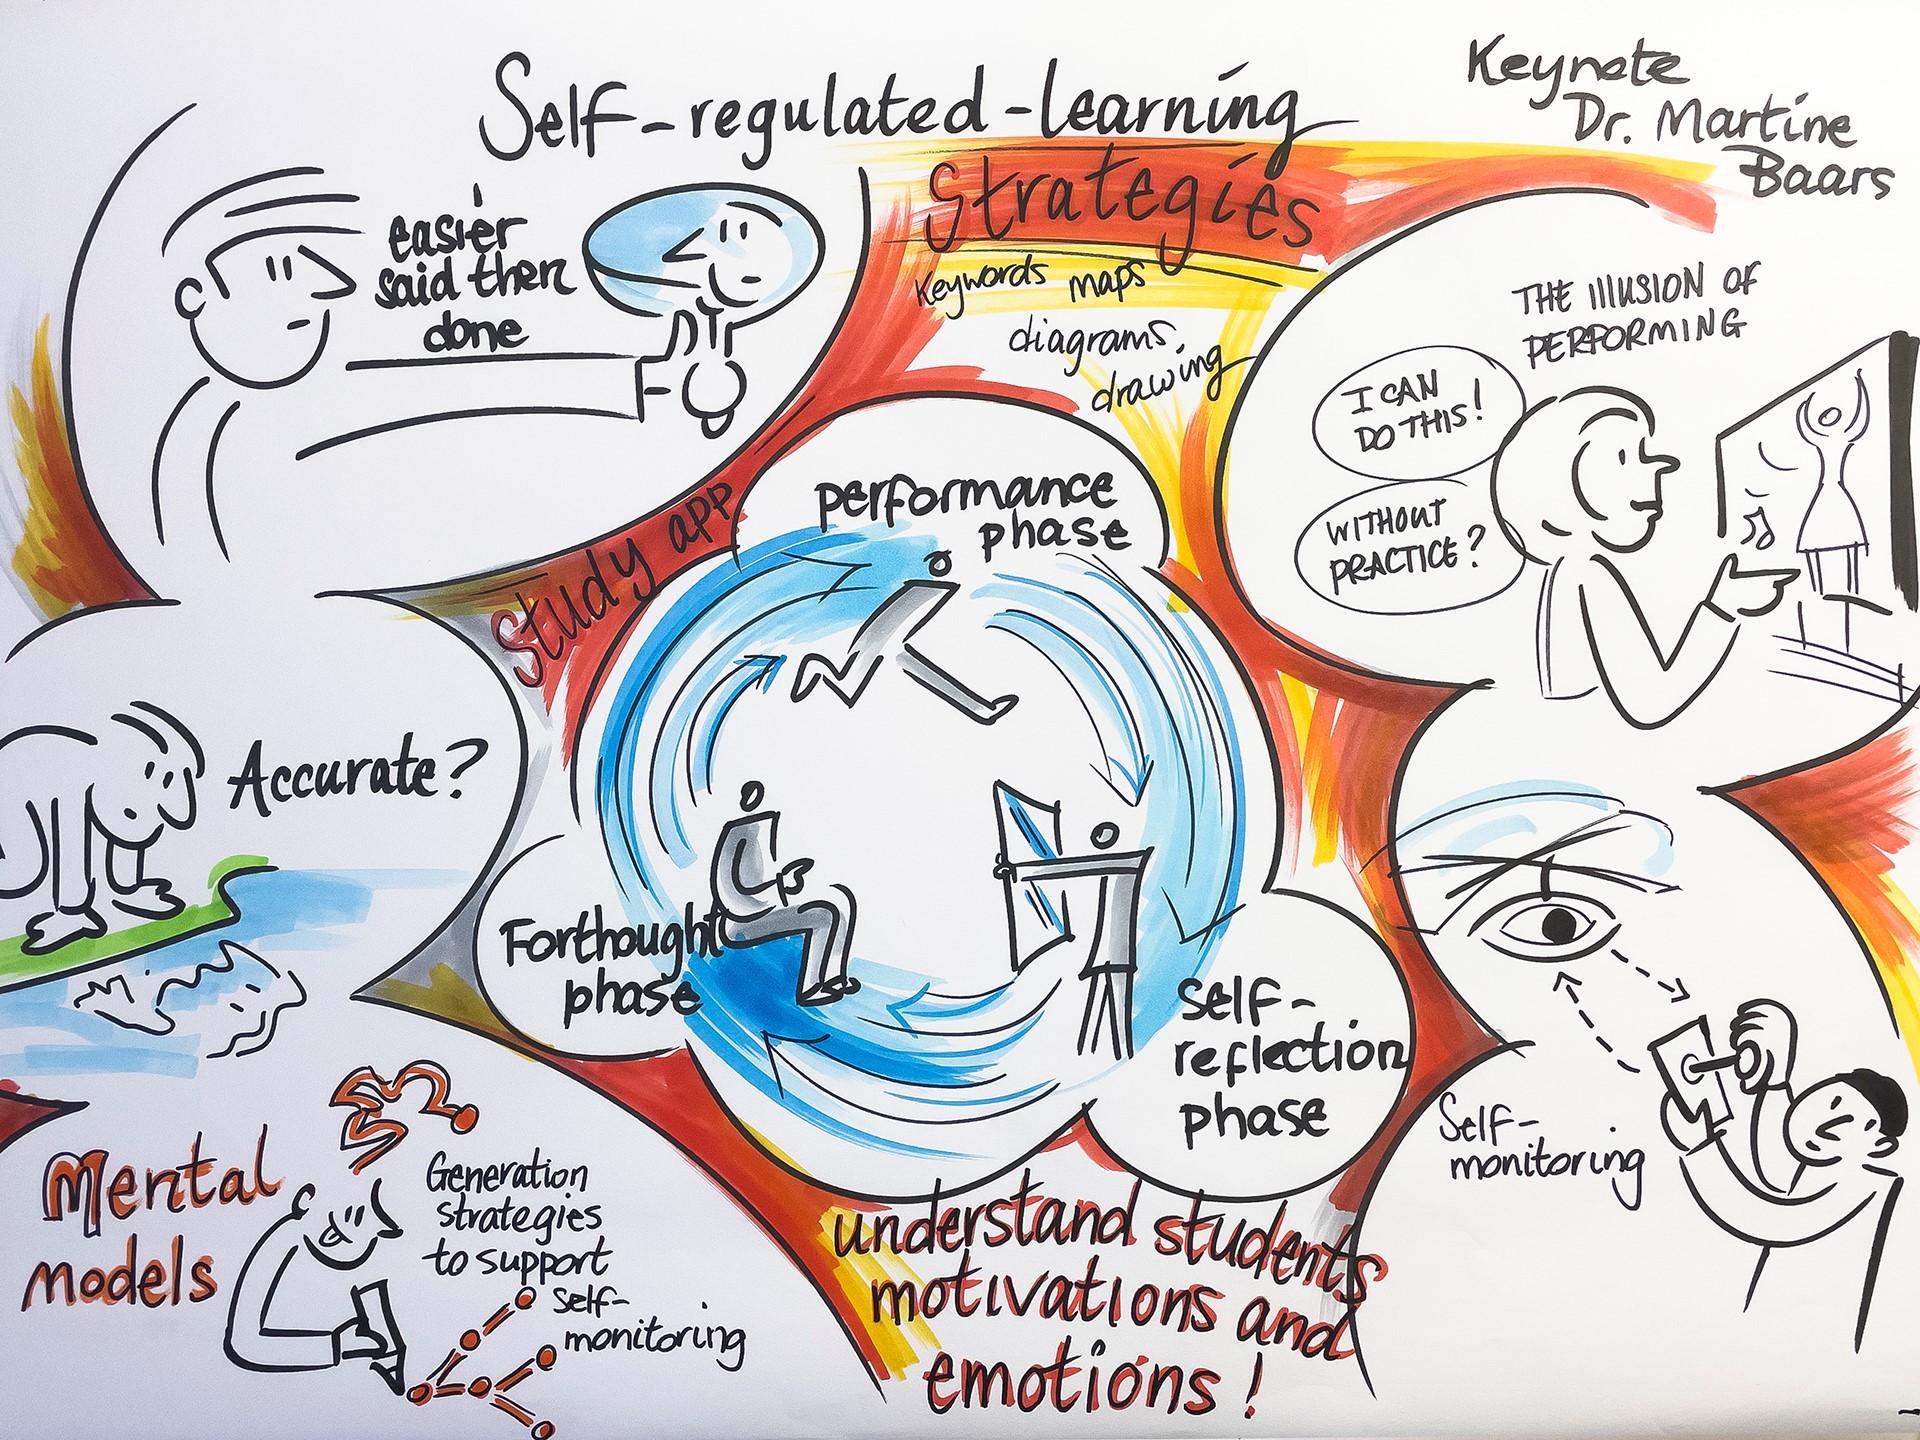 Self-regulated-learning
Strategies
Keynote
Dr. Martine
Baars
easier
said then
done
Keywords maps
diagrams,
drawing
THE ILLUSION OF
PERFORMING
I CAN
DO THIS!
WITHOUT
PRACTICE?
Study app
performance
phase
Accurate?
Forthought
phase
Self-
reflection
phase
Self-
monitoring
Mental
models
Generation
strategies
to support
self-
monitoring
understand students
motivations and
emotions!